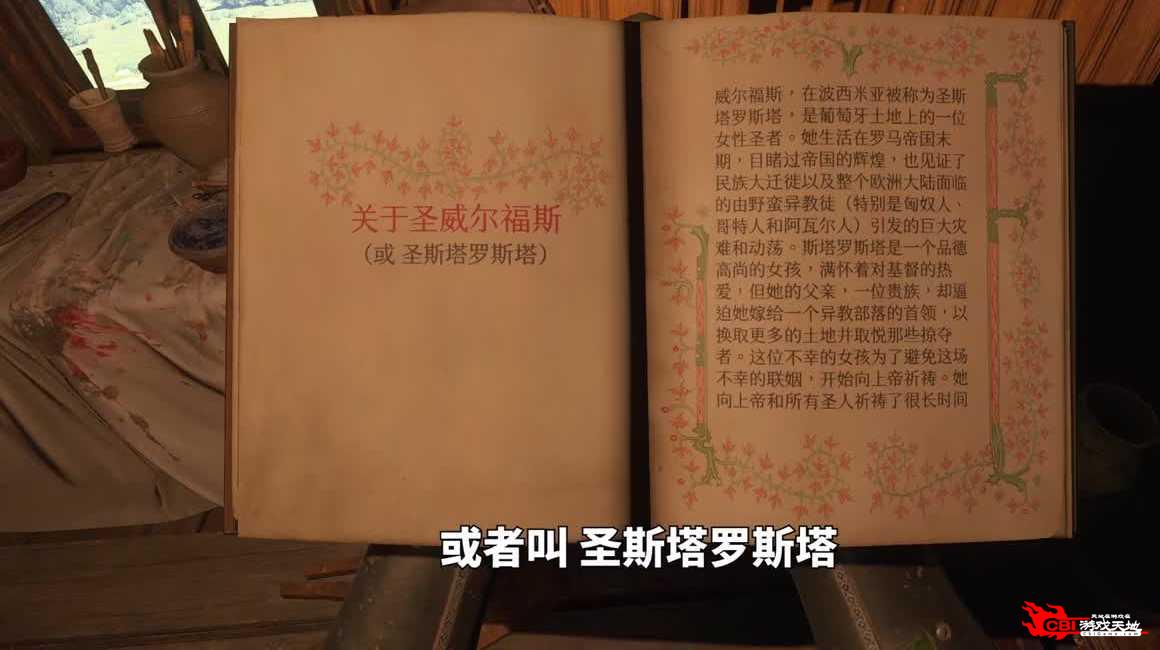 关于圣威尔福斯
（或 圣斯塔罗斯塔）
威尔福斯，在波西米亚被称为圣斯
塔罗斯塔，是葡萄牙土地上的一位
女性圣者。她生活在罗马帝国末
期，目睹过帝国的辉煌，也见证了
民族大迁徙以及整个欧洲大陆面临
的由野蛮异教徒（特别是匈奴人、
哥特人和阿瓦尔人）引发的巨大灾
难和动荡。斯塔罗斯塔是一个品德
高尚的女孩，满怀着对基督的热
爱，但她的父亲，一位贵族，却逼
迫她嫁给一个异教部落的首领，以
换取更多的土地并取悦那些掠夺
者。这位不幸的女孩为了避免这场
不幸的联姻，开始向上帝祈祷。她
向上帝和所有圣人祈祷了很长时间
或者叫 圣斯塔罗斯塔
天地在游戏在
CBI游戏天地
CbiGame.com